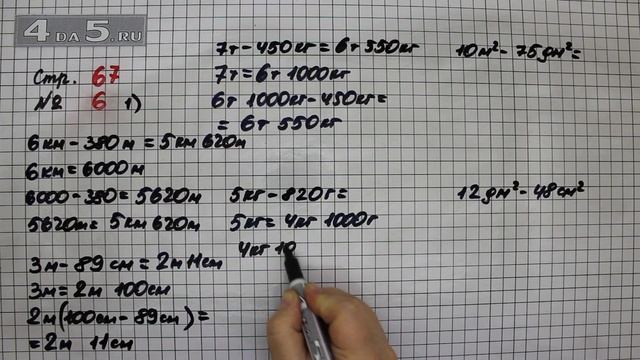 4DA5.RU
Стр. 67
№ 6 1)
6км - 380м = 5км 620м
6км = 6000м
6000 - 380 = 5620м
5620м = 5км 620м
3м - 89см = 2м 11см
3м = 2м 100см
2м(100см - 89см) =
= 2м 11см
7т - 450кг = 6т 550кг
7т = 6т 1000кг
6т 1000кг - 450кг =
= 6т 550кг
5кг - 820г =
5кг = 4кг 1000г
4кг 10
10м² - 75дм² =
12дм² - 48см²